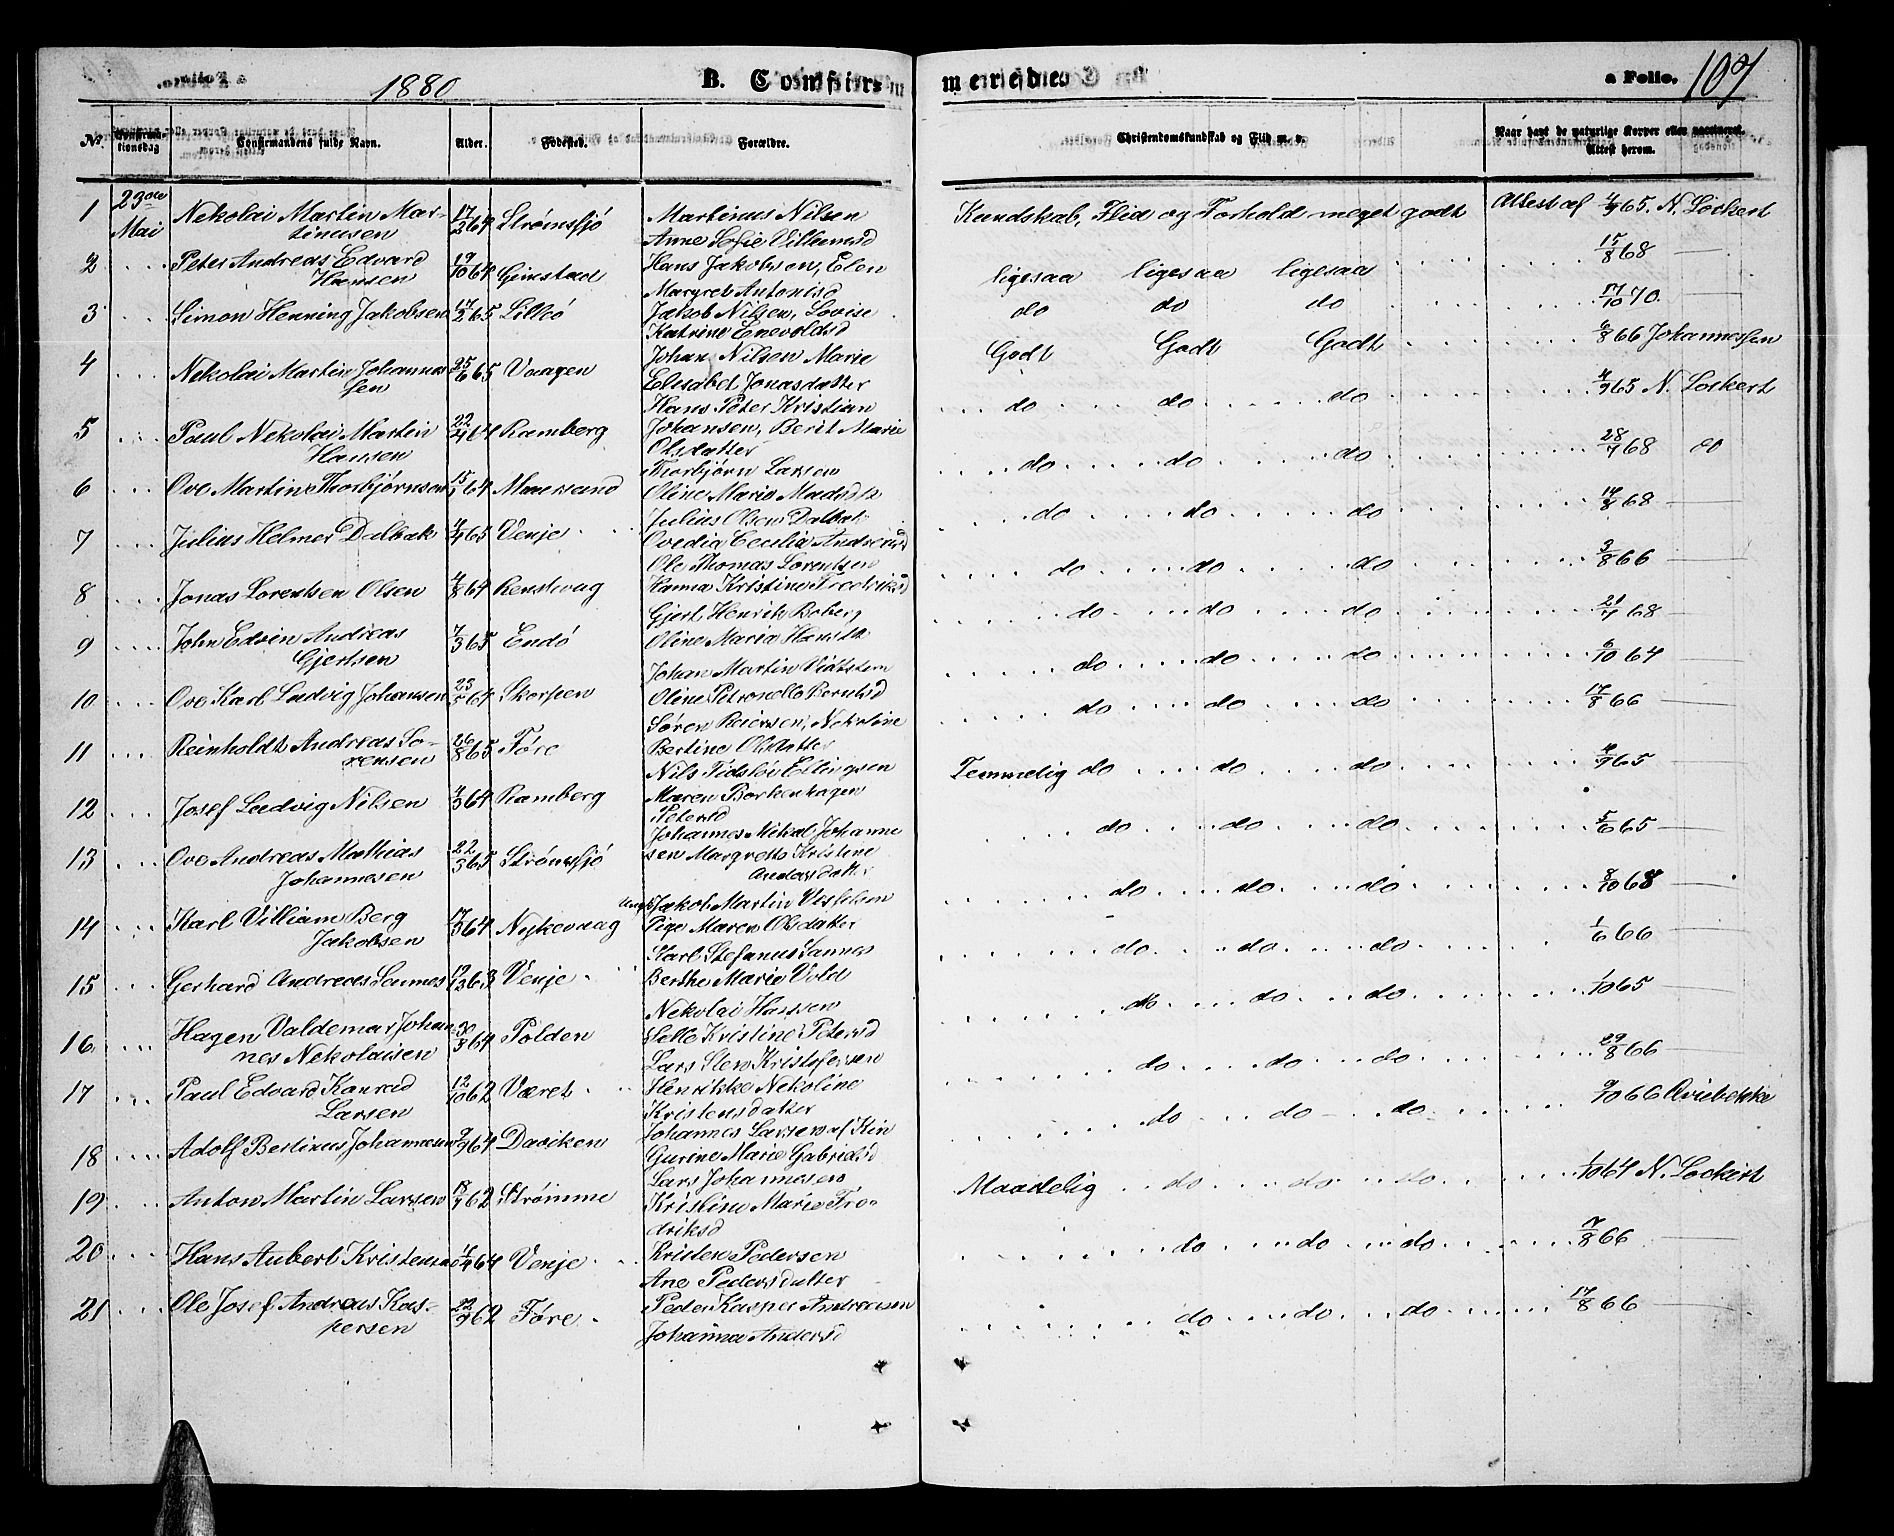 1880 B. Confirmerede. a Folio. 107
No. Confirmationsdag Confirmandens fulde Navn. Alder. Fødested. Forældre. Christendomskundskab og Flid m. v. Naar havt de naturlige Kopper eller vaccineret. Attest herom.
1 23de Mai Nekolai Martin Mar- 17/2 64 Strømsfjö Martinus Nilsen Kundskab, Flid og Forhold meget godt Attest af 4/9 65. N. Lockert
tinusen Anne Sofie Villumsd
2 Peter Andreas Edvard 19/10 64 Gimstad Hans Jakobsen, Elen ligesaa ligesaa ligesaa 15/8 68
Hansen Margret Antonisd
3 Simon Henning Jakobsen 17/2 65 Lilleö Jakob Nilsen, Lovise do do do 17/10 70
Katrine Enevoldsd
4 Nekolai Martin Johannes 25/6 65 Vaagen Johan Nilsen Marie Godt Godt Godt 6/8 66 Johannessen
sen Elisabet Jonasdatter
5 Paul Nekolai Martin 22/4 64 Ramberg Hans Peter Kristian do do do 4/9 65 N. Lockert
Hansen Johansen, Berit Marie
Olsdatter
6 Ove Martin Thorbjørnsen 15/1 64 Thorbjørn Larsen do do do 28/7 68 do
Oline Marie Madsdtr
7 Julius Helmer Dalbak 4/4 65 Venje Julius Olsen Dalbak do do do 14/8 68
Ovedia Cecilia Andreasd
8 Jonas Lorentsen Olsen 4/8 64 Ole Thomas Lorentsen do do do 3/8 66
Hanna Kristine Fredriksd
9 John Edvin Andreas 7/3 65 Endö Gjert Henrik Boberg do do do 21/7 68
Gjertsen Oline Maria Hansdtr
10 Ove Karl Ludvig Johansen 64 Skorpen Johan Martin do do do 6/10 64
Oline Petronelle Berntsd
11 Reinholdt Andreas Sö- 26/8 65 Føre Søren Reiersen, Nekoline do do do 17/8 66
rensen Bertine Olsdatter
12 Josef Ludvig Nilsen 4/3 64 Ramberg Nils Ellingsen Temmelig do do do 4/9 65
Maren Borkenhagen
Petersd
13 Ove Andreas Mathias 22/3 65 Strømsfjö Johannes Mikal Johanne do do do 5/6 65
Johannesen sen Margrette Kristine
Andersdatter
14 Karl Villiam Berg 17/3 64 Nykevaag Ungk. Jakob Martin do do do 8/10 68
Jakobsen Pige Maren Olsdatter
15 Gerhard Andreas Sannes 63 Venje Karl Stefanus Sannes do do do 1/6 66
Berthe Marie Vold
16 Hagen Valdemar Johan 30/3 64 Polden Nekolai Hansen do do do 1/10 65
nes Nekolaisen Kristine Petersd
17 Paul Edvard Konrad 12/10 62 Været Lars Sten Kristofersen do do do 29/8 66
Larsen Henrikke Nekoline
Kristensdatter
18 Adolf Bertinus Johannesen 9/9 64 Daviken Johannes Larsen af Kin do do do 9/10 66
Gurine Marie Gabrielsd
19 Anton Martin Larsen 18/7 62 Strømme Lars Johannesen Maadelig do do do 1/10 64 N. Lockert
Kristine Marie Fre-
driksd
20 Hans Aubert Kristensen 64 Venje Kristen Pedersen do do do 7/8 66
Ane Pedersdatter
21 Ole Josef Andreas Kas- 22/9 62 Føre Peder Kasper Andreasen do do do 17/8 66
persen Johanna Andersd